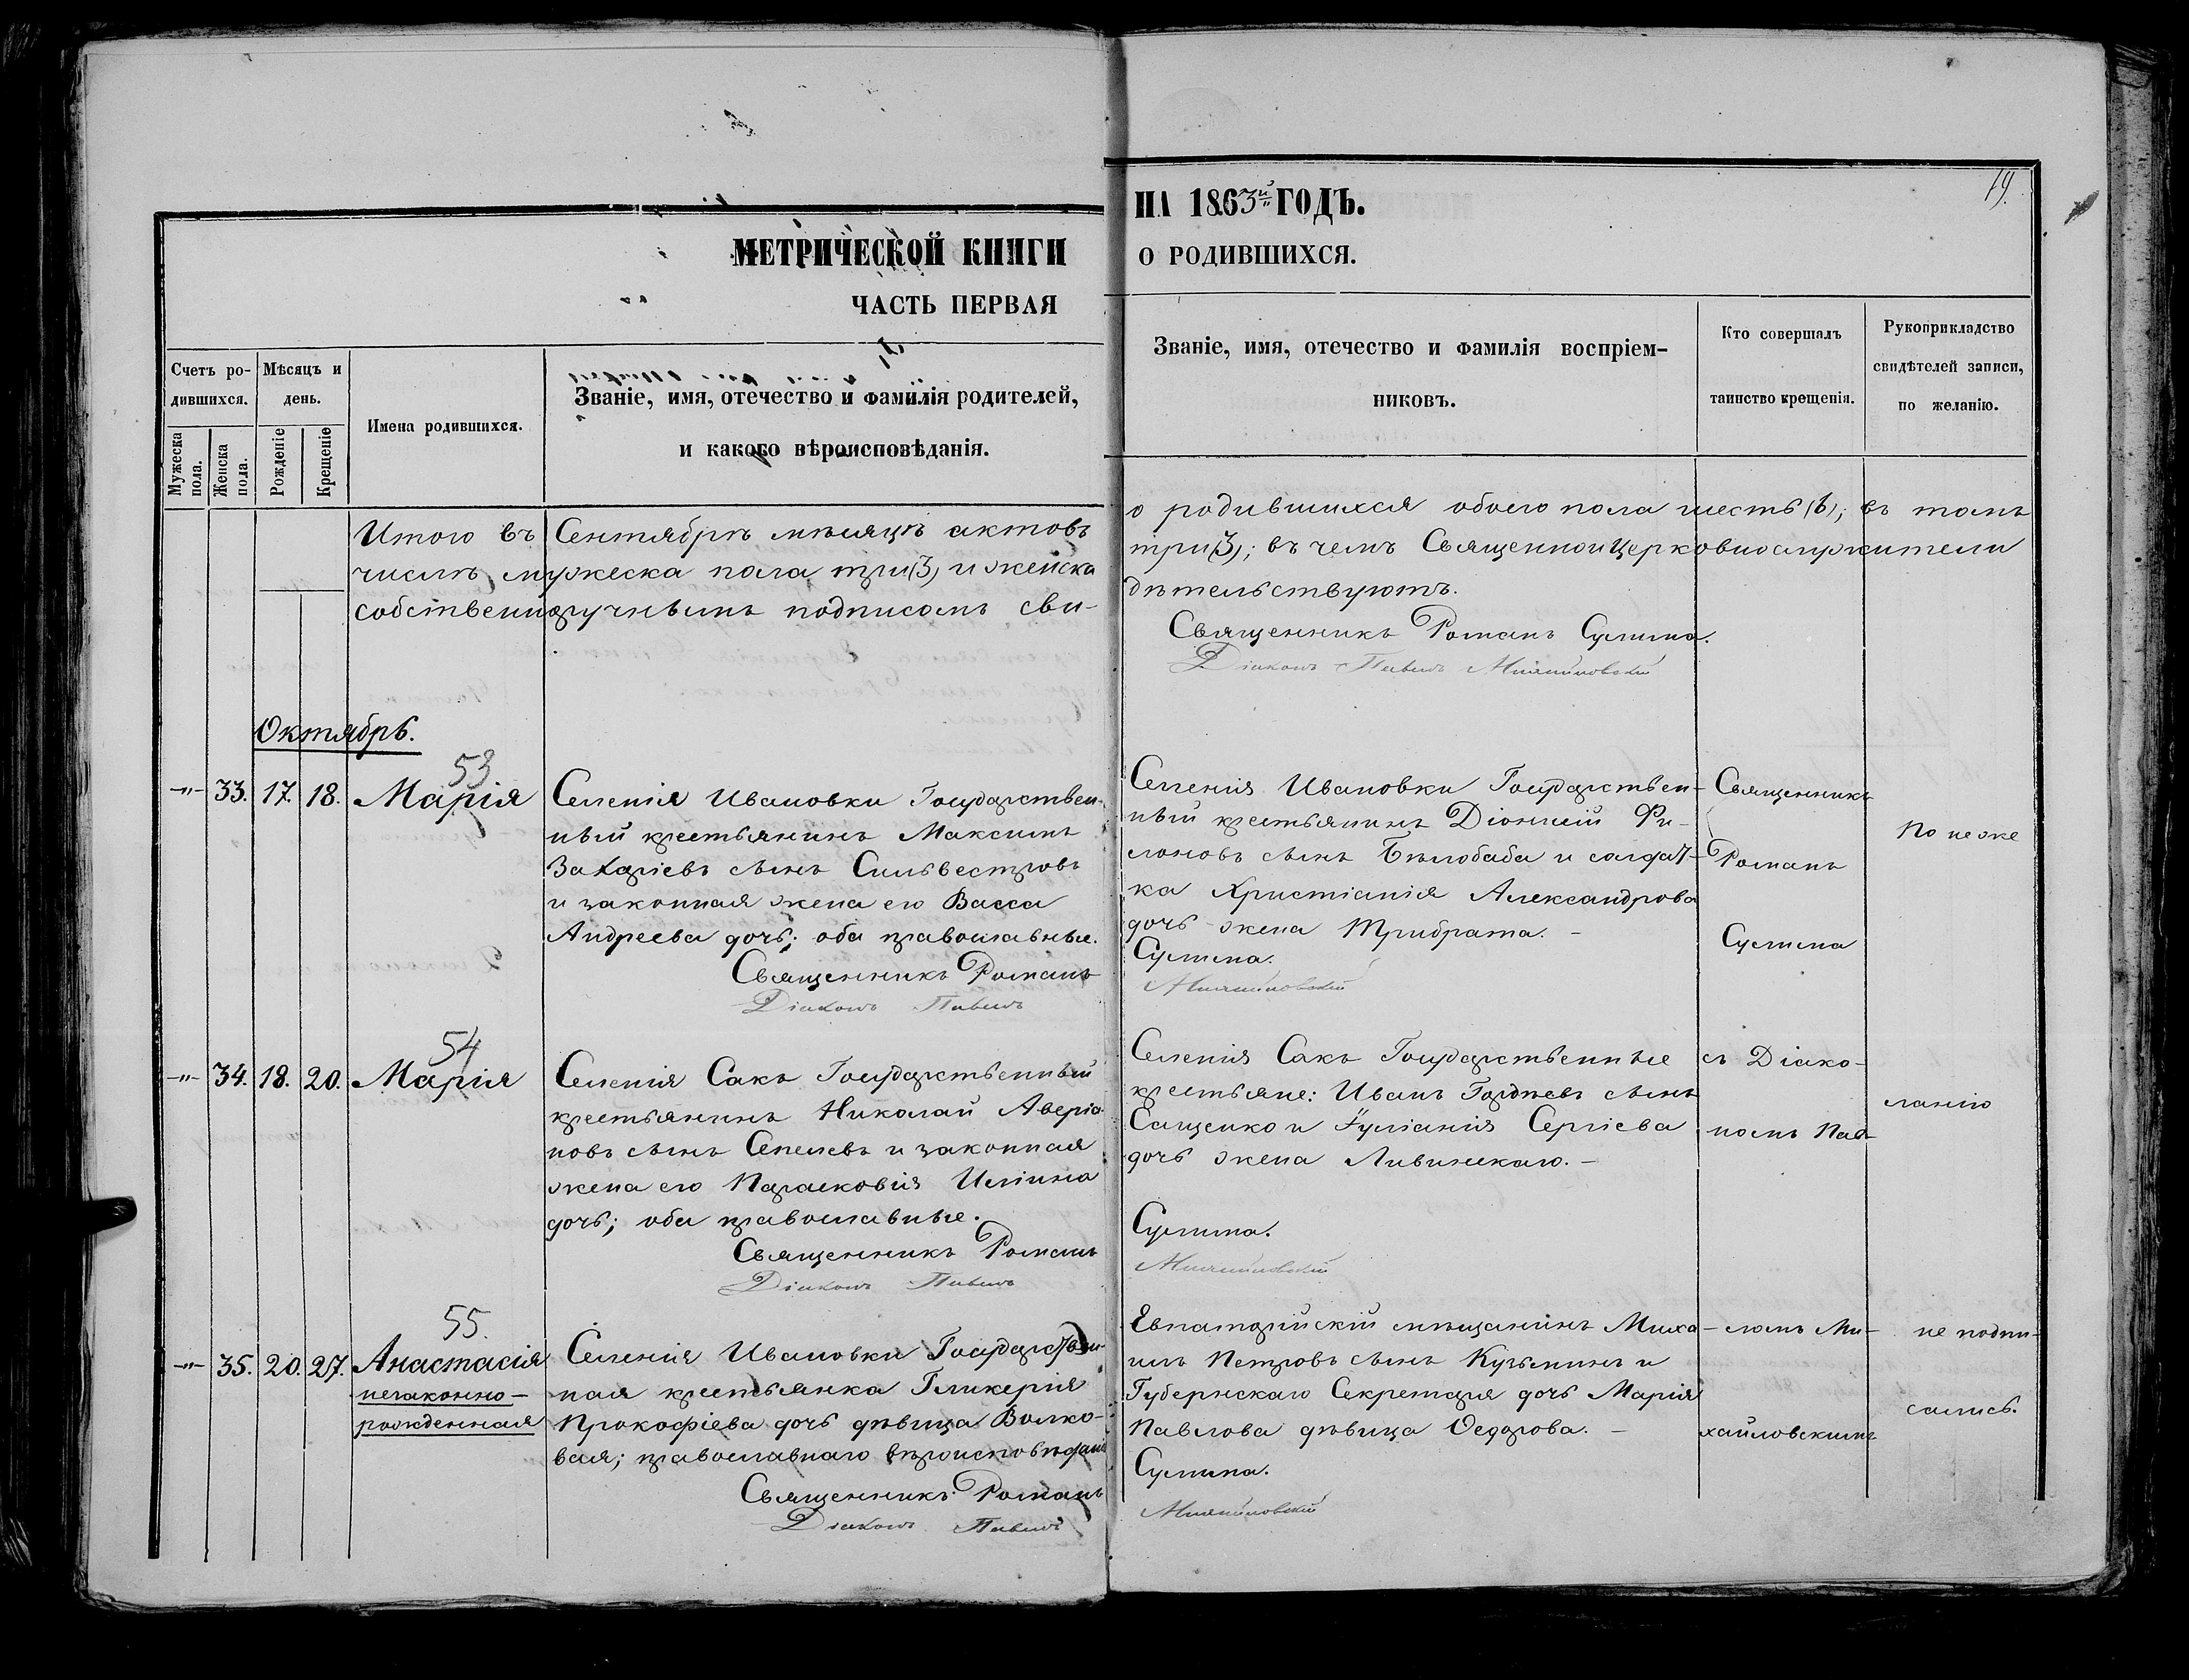 19.
НА 1863й ГОДЪ.
МЕТРИЧЕСКОЙ КНИГИ
О РОДИВШИХСЯ.
ЧАСТЬ ПЕРВАЯ
Счетъ ро-
дившихся.
Мужеска пола.
Женска пола.
Мѣсяцъ и
день.
Рожденіе
Крещеніе
Имена родившихся.
Званіе, имя, отечество и фамилія родителей,
и какого вѣроисповѣданія.
Званіе, имя, отечество и фамилія воспріем-
никовъ.
Кто совершалъ
таинство крещенія.
Рукоприкладство
свидѣтелей записи,
по желанію.
Итого въ Сентябрѣ мѣсяцѣ актовъ о родившихся обоего пола шесть (6); въ томъ
числѣ мужеска пола три (3) и женска три (3); въ чемъ Священноицерковнослужители
собственноручнымъ подписомъ сви-дѣтельствуютъ.
Священникъ Романъ Сулима.
Діаконъ Павелъ
Октябрь.
53
-"- 33. 17. 18. Марія
Селенія Ивановки Государствен-
ный крестьянинъ Максимъ
Захаріевъ сынъ Сильвестровъ
и законная жена его Васса
Андреева дочь; оба православные.
Священникъ Романъ
Діаконъ Павелъ
Селенія Ивановки Государствен-
ный крестьянинъ Діонисій Фи-
лоновъ сынъ Бѣлобаба и солдат-
ка Христіанія Александрова
дочь жена Трибрата. -
Сулима.
Священникъ
Романъ
Сулима
По неже
54
-"- 34. 18. 20. Марія
Селенія Сакъ Государственный
крестьянинъ Николай Аверіа-
новъ сынъ Сепелевъ и законная
жена его Парасковія Иліина
дочь; оба православные.
Священникъ Романъ
Діаконъ Павелъ
Селенія Сакъ Государственные
крестьяне: Иванъ Гордѣевъ сынъ
Сащенко и Іуліанія Сергіева
дочь жена Ливинскаго. -
Сулима.
съ Діако-
номъ Пав-
ланію
55.
-"- 35. 20. 27. Анастасія
незаконно-
рожденная
Селенія Ивановки Государствен-
ная крестьянка Гликерія
Прокофіева дочь дѣвица Волко-
вая; православнаго вѣроисповѣданія
Священникъ Романъ
Діаконъ Павелъ
Евпаторійскій мѣщанинъ Миха-
илъ Петровъ сынъ Кузьминъ и
Губернскаго Секретаря дочь Марія
Павлова дѣвица Ѳедорова. -
Сулима.
ломъ Ми-
хайловскимъ
не подпи-
сались.